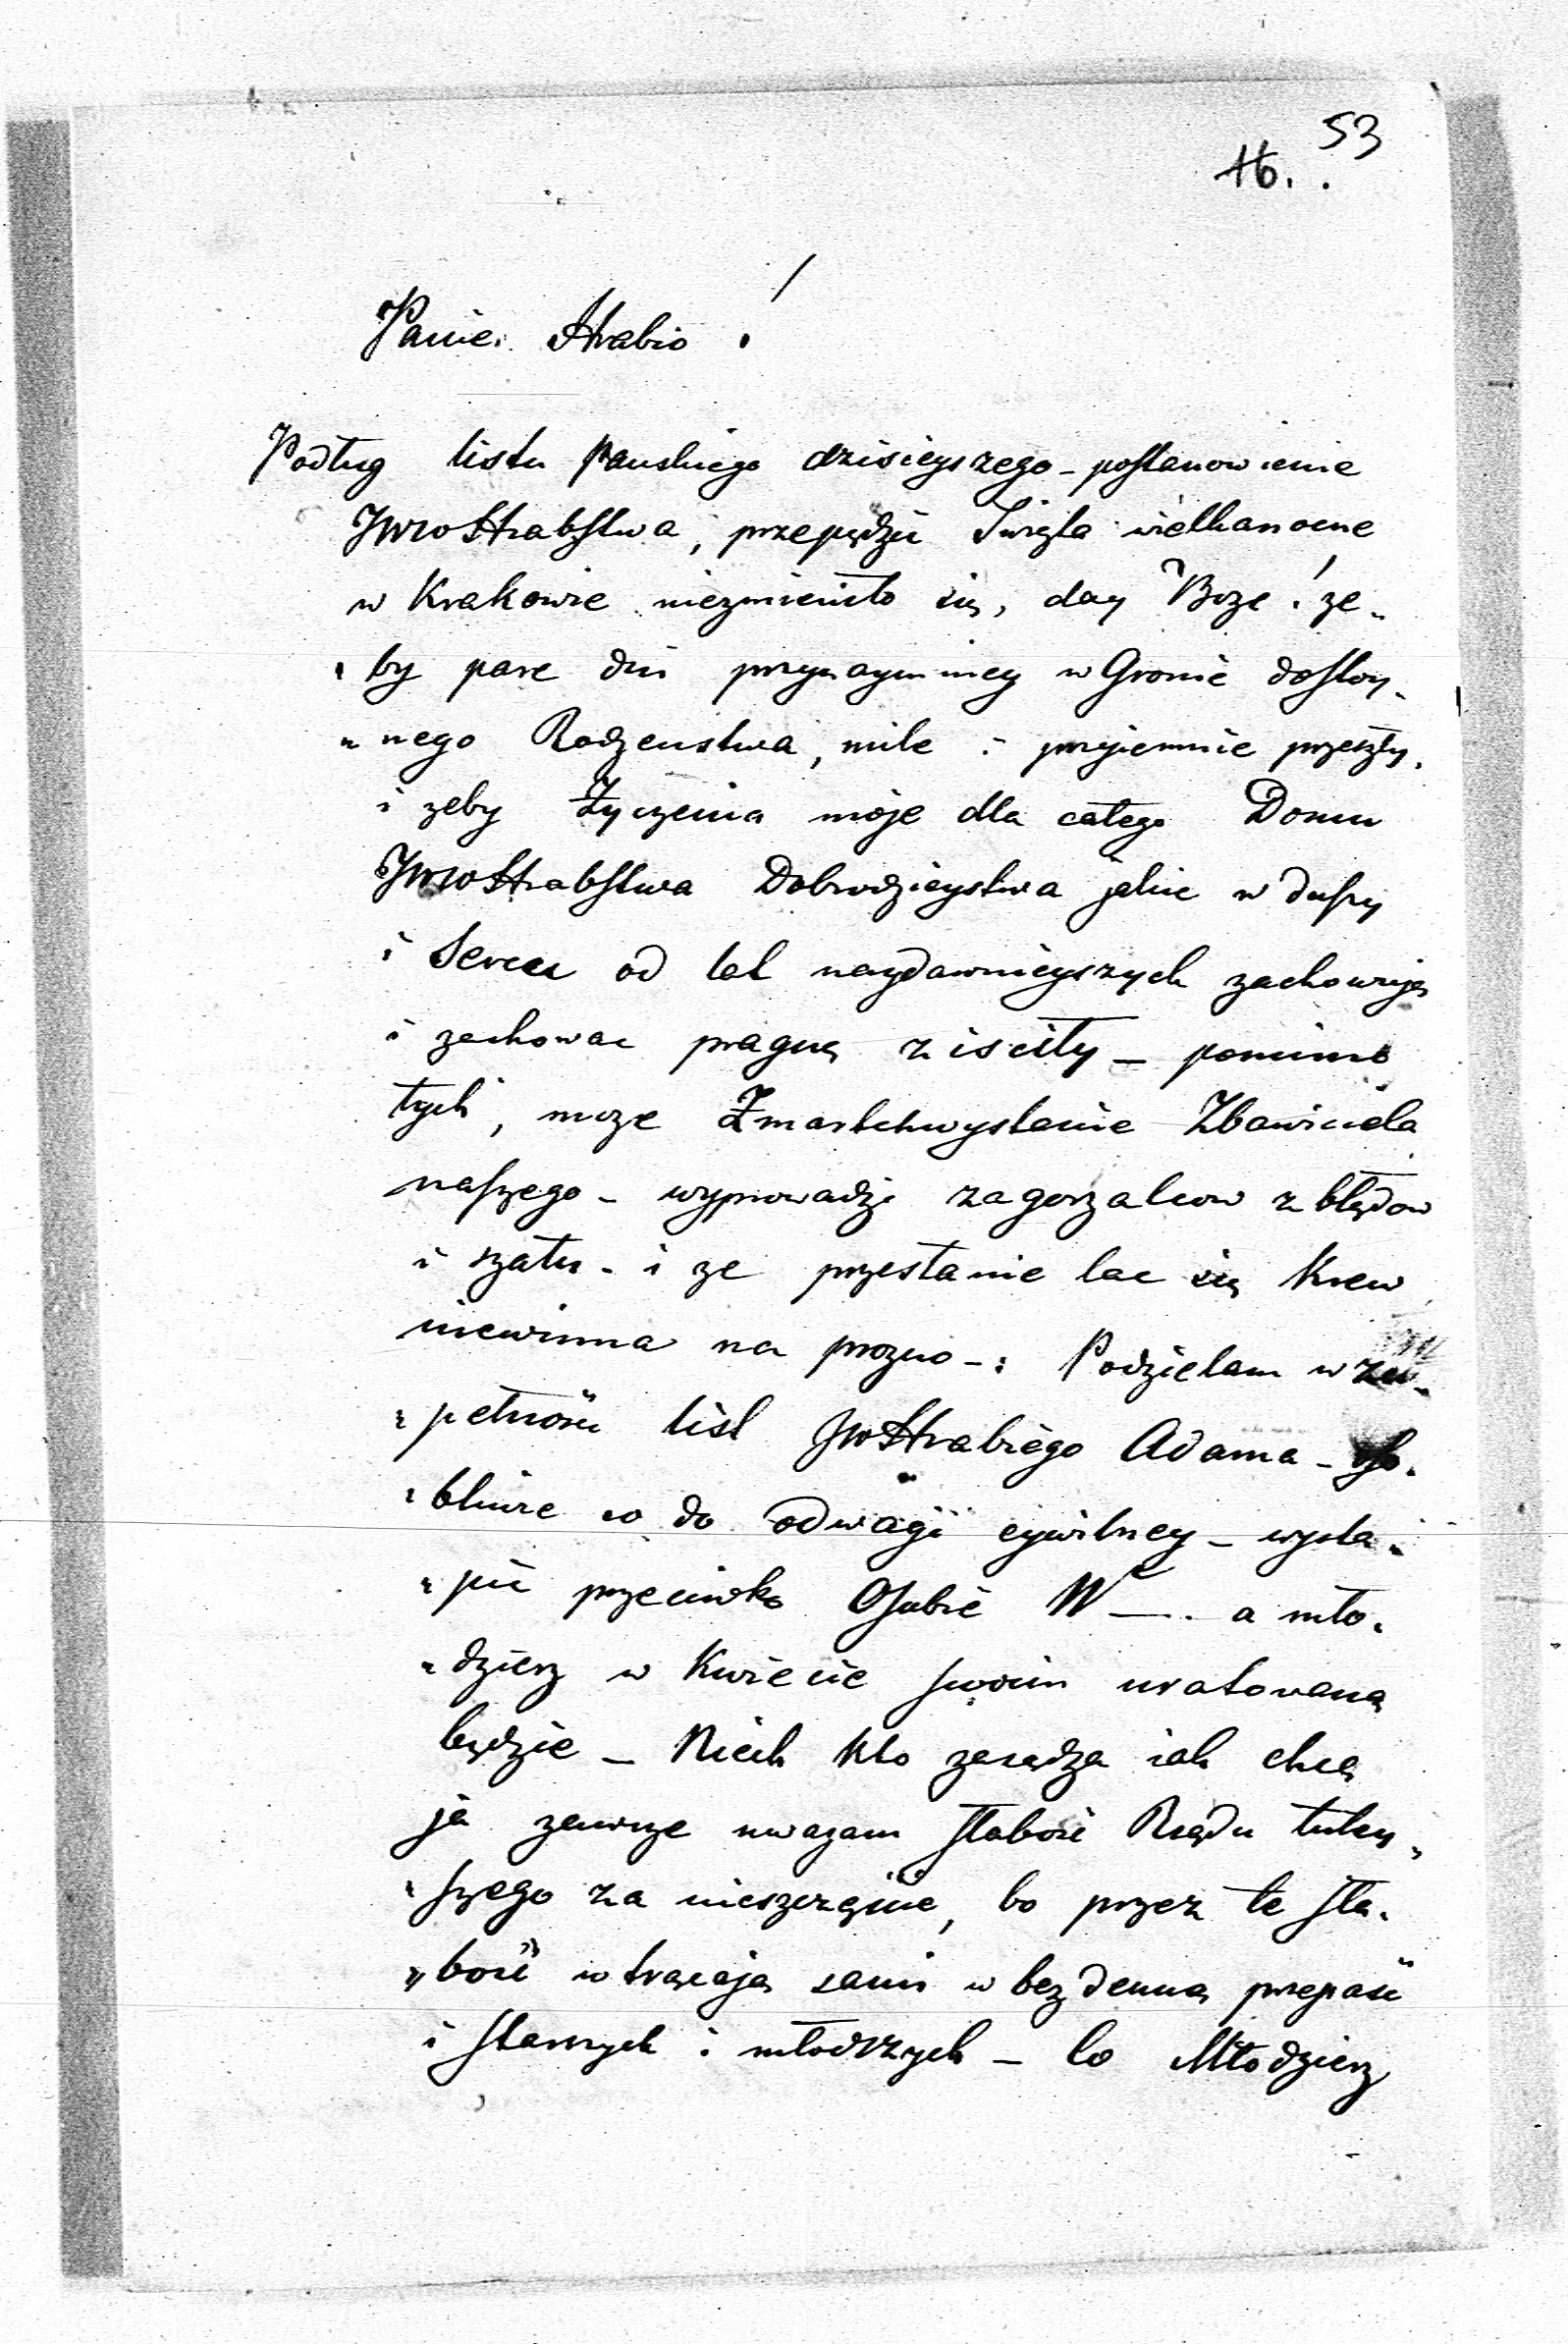 53
16.
Panie Hrabio !
Podług listu Pańskiego dzisieyszego - postanowienie
JWWoHrabstwa, przepędzić Swięta wielkanocne
w Krakowie niezmieniło się, day Boze! ze-
by pare dni przynaymniey w Gronie dostoy-
nego Rodzenstwa, mile i przyjemnie przeszły.
i zeby Życzenia moje dla całego Domu
JWWoHrabstwa Dobrodzieystwa jakie w duszy
i Sercu od lat naydawnieyszych zachowuję
i zachowac pragnę ziściły - pomimo
tych, moze Zmartchwystanie Zbawiciela
naszego - wyprowadzi zagorzalcow z błędow
i szału - i ze przestanie lac się Krew
niewinna na prozno -: Podzielam w zu-
pełności list JWHrabiego Adama - oso-
bliwie co do odwagi cywilney - wystą-
pić przeciwko Osobie W—. a mło-
dziesz w Kwiecie swoim uratowaną
będzie - Niech kto zarządza iak chcą
ja zawsze uwazam słabość Rządu tutey-
szego za nieszczęście, bo przez te sła-
bość wtrącają sami w bezdenną przepaść
i starszych i młodszych - to Młodziesz